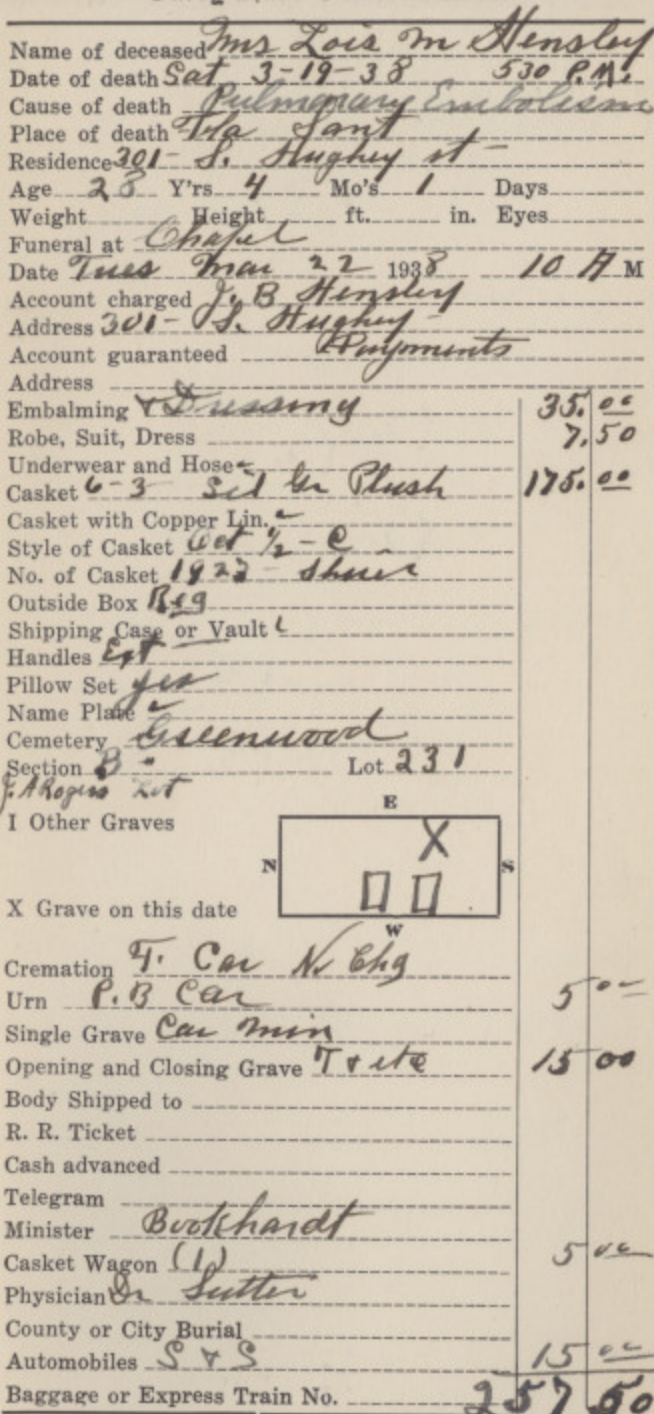 Name of deceased Mrs Lois M Hensley
Date of death Sat 3-19-38 530 P.M.
Cause of death Pulmonary Embolism
Place of death Fla Sant
Residence 301- S. Hughey st
Age 28 Y'rs 4 Mo's 1 Days
Weight Height ft. in. Eyes
Funeral at Chapel
Date Tues Mar 22 1938 10 A M
Account charged J. B Hensley
Address 301- S. Hughey
Account guaranteed Payments
Address
Embalming & Dressing 35.00
Robe, Suit, Dress 7.50
Underwear and Hose "
Casket 6-3 Sil Gr Plush 175.00
Casket with Copper Lin. "
Style of Casket Oct ½ - C
No. of Casket 1923
Outside Box Reg
Shipping Case or Vault
Handles Ext
Pillow Set yes
Name Plate "
Cemetery Greenwood
Section B " Lot 231
J. A Rogers Lot
E
I Other Graves
X
N S
X Grave on this date
W
Cremation F. Car N. Chg
Urn P.B Car 5 00
Single Grave Car Min
Opening and Closing Grave T & etc 15 00
Body Shipped to
R. R. Ticket
Cash advanced
Telegram
Minister Bookhardt
Casket Wagon (1) 5 00
Physician Dr Sutter
County or City Burial
Automobiles S & S 15 00
Baggage or Express Train No. 257 50